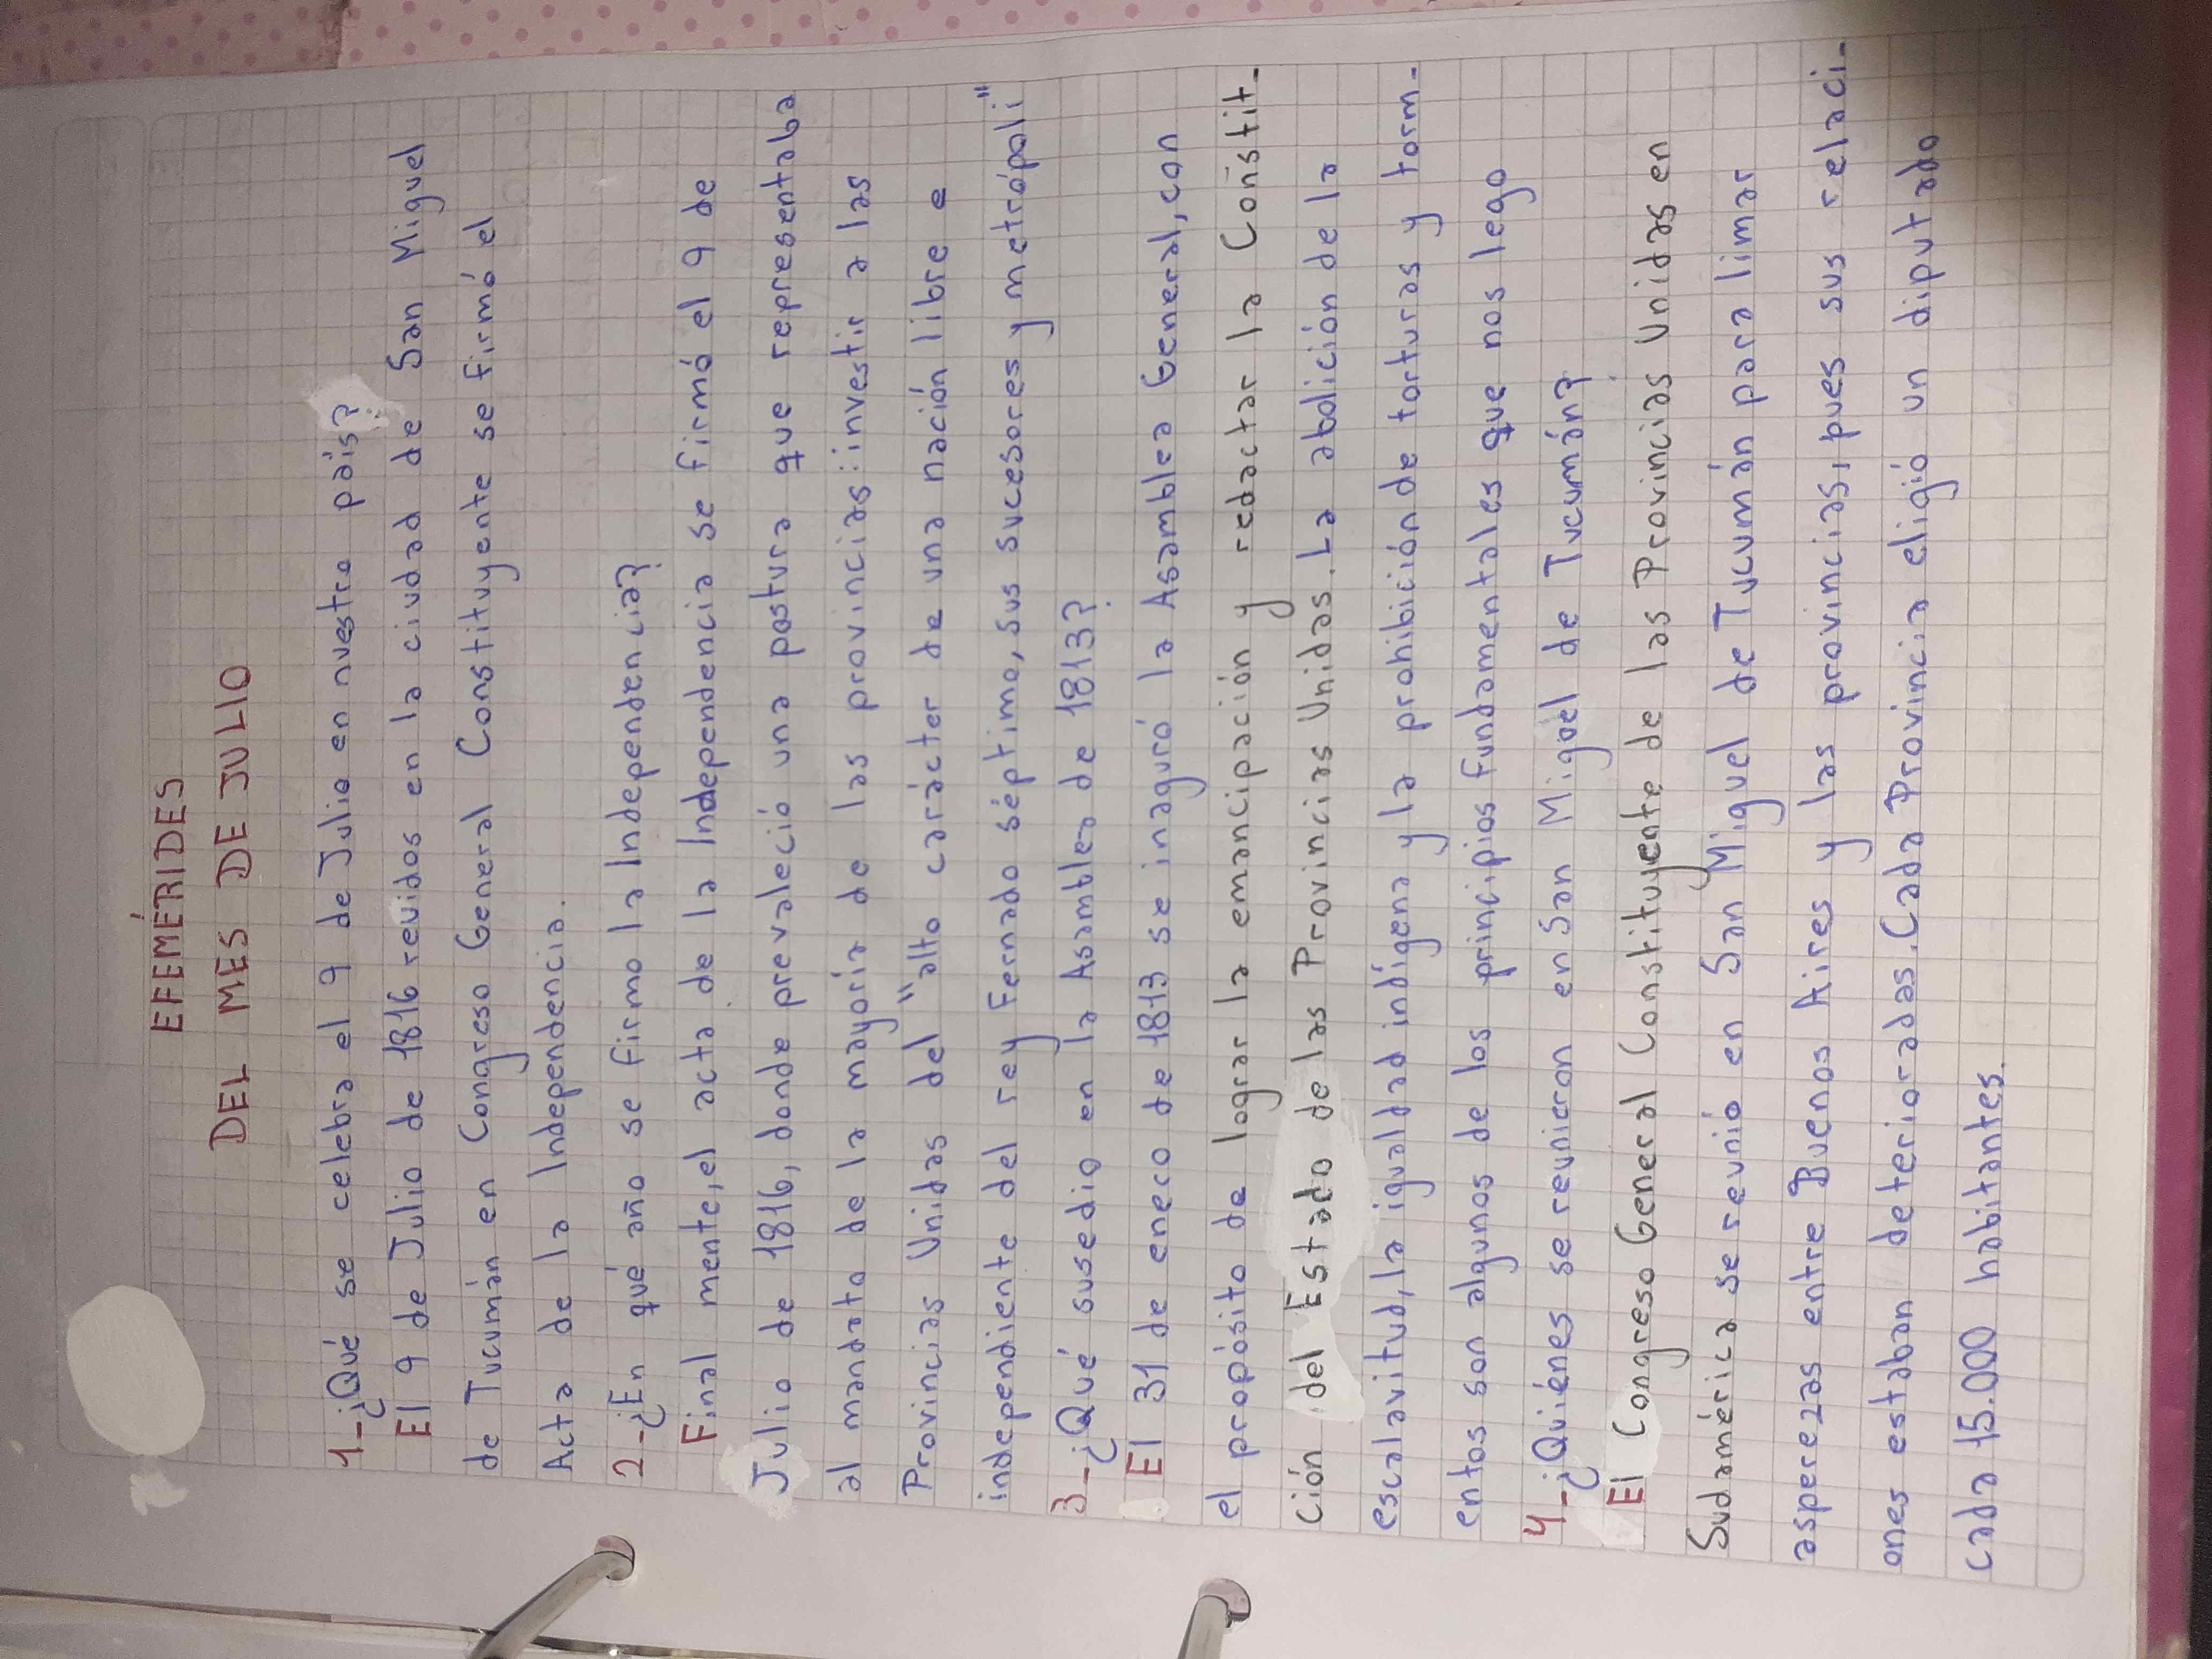 EFEMÉRIDES
DEL MES DE JULIO
1-¿Qué se celebra el 9 de Julio en nuestro país?
El 9 de Julio de 1816 reuidos en la ciudad de San Miguel
de Tucumán en Congreso General Constituyente se firmó el
Acta de la Independencia.
2-¿En qué año se firmo la Independencia?
Final mente, el acta de la Independencia se firmó el 9 de
Julio de 1816, donde prevaleció una postura que representaba
al mandato de la mayoría de las provincias: investir a las
Provincias Unidas del "alto carácter de una nación libre e
independiente del rey Fernado séptimo, sus sucesores y metrópoli"
3-¿Qué susedio en la Asamblea de 1813?
El 31 de eneco de 1813 se inaguró la Asamblea General, con
el propósito de lograr la emancipación y redactar la Constit-
ción del Estado de las Provincias Unidas. La abolición de la
escalavitud, la igualdad indígena y la prohibición de torturas y torm-
entos son algunos de los principios fundamentales que nos lego
4-¿Quiénes se reunieron en San Miguel de Tucumán?
El Congreso General Constituyente de las Provincias Unidas en
Sudamérica se reunió en San Miguel de Tucumán para limar
asperezas entre Buenos Aires y las provincias, pues sus relaci-
ones estaban deterioradas. Cada Provincia eligió un diputado
cada 15.000 habitantes.